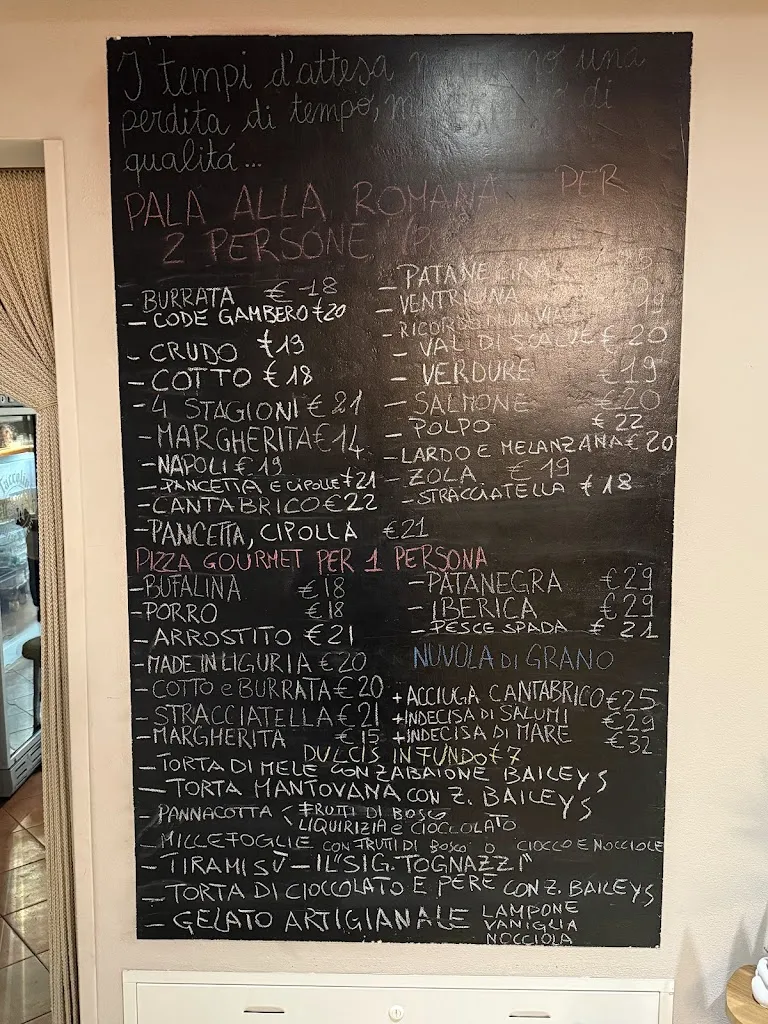 I tempi d'attesa no una
perdita di tempo, di
qualitá...
PALA ALLA ROMANA PER
2 PERSONE
- BURRATA € 18
- CODE GAMBERO €20
- CRUDO €19
- COTTO € 18
- 4 STAGIONI € 21
- MARGHERITA € 14
- NAPOLI € 19
- PANCETTA E CIPOLLE €21
- CANTABRICO € 22
- PANCETTA, CIPOLLA €21
- PATANEGRA
- VENTRICINA
- 19
- VAL DI SCALVE € 20
- VERDURE €19
- SALMONE €20
- POLPO € 22
- LARDO E MELANZANA € 20
- ZOLA € 19
- STRACCIATELLA € 18
PIZZA GOURMET PER 1 PERSONA
- BUFALINA € 18
- PORRO € 18
- ARROSTITO € 21
- MADE IN LIGURIA € 20
- COTTO e BURRATA € 20
- STRACCIATELLA € 21
- MARGHERITA € 15
- PATANEGRA €29
- IBERICA €29
- PESCE SPADA € 21
NUVOLA DI GRANO
+ ACCIUGA CANTABRICO €25
+ INDECISA DI SALUMI €29
+ INDECISA DI MARE €32
DULCIS IN FUNDO € 7
- TORTA DI MELE CON ZABAIONE BAILEYS
- TORTA MANTOVANA CON Z. BAILEYS
- PANNACOTTA < FRUTTI DI BOSCO
LIQUIRIZIA e CIOCCOLATO
- MILLEFOGLIE CON FRUTTI DI BOSCO O CIOCCO E NOCCIOLE
- TIRAMISÙ - IL "SIG. TOGNAZZI"
- TORTA DI CIOCCOLATO E PERE CON Z. BAILEYS
- GELATO ARTIGIANALE LAMPONE
VANIGLIA
NOCCIOLA